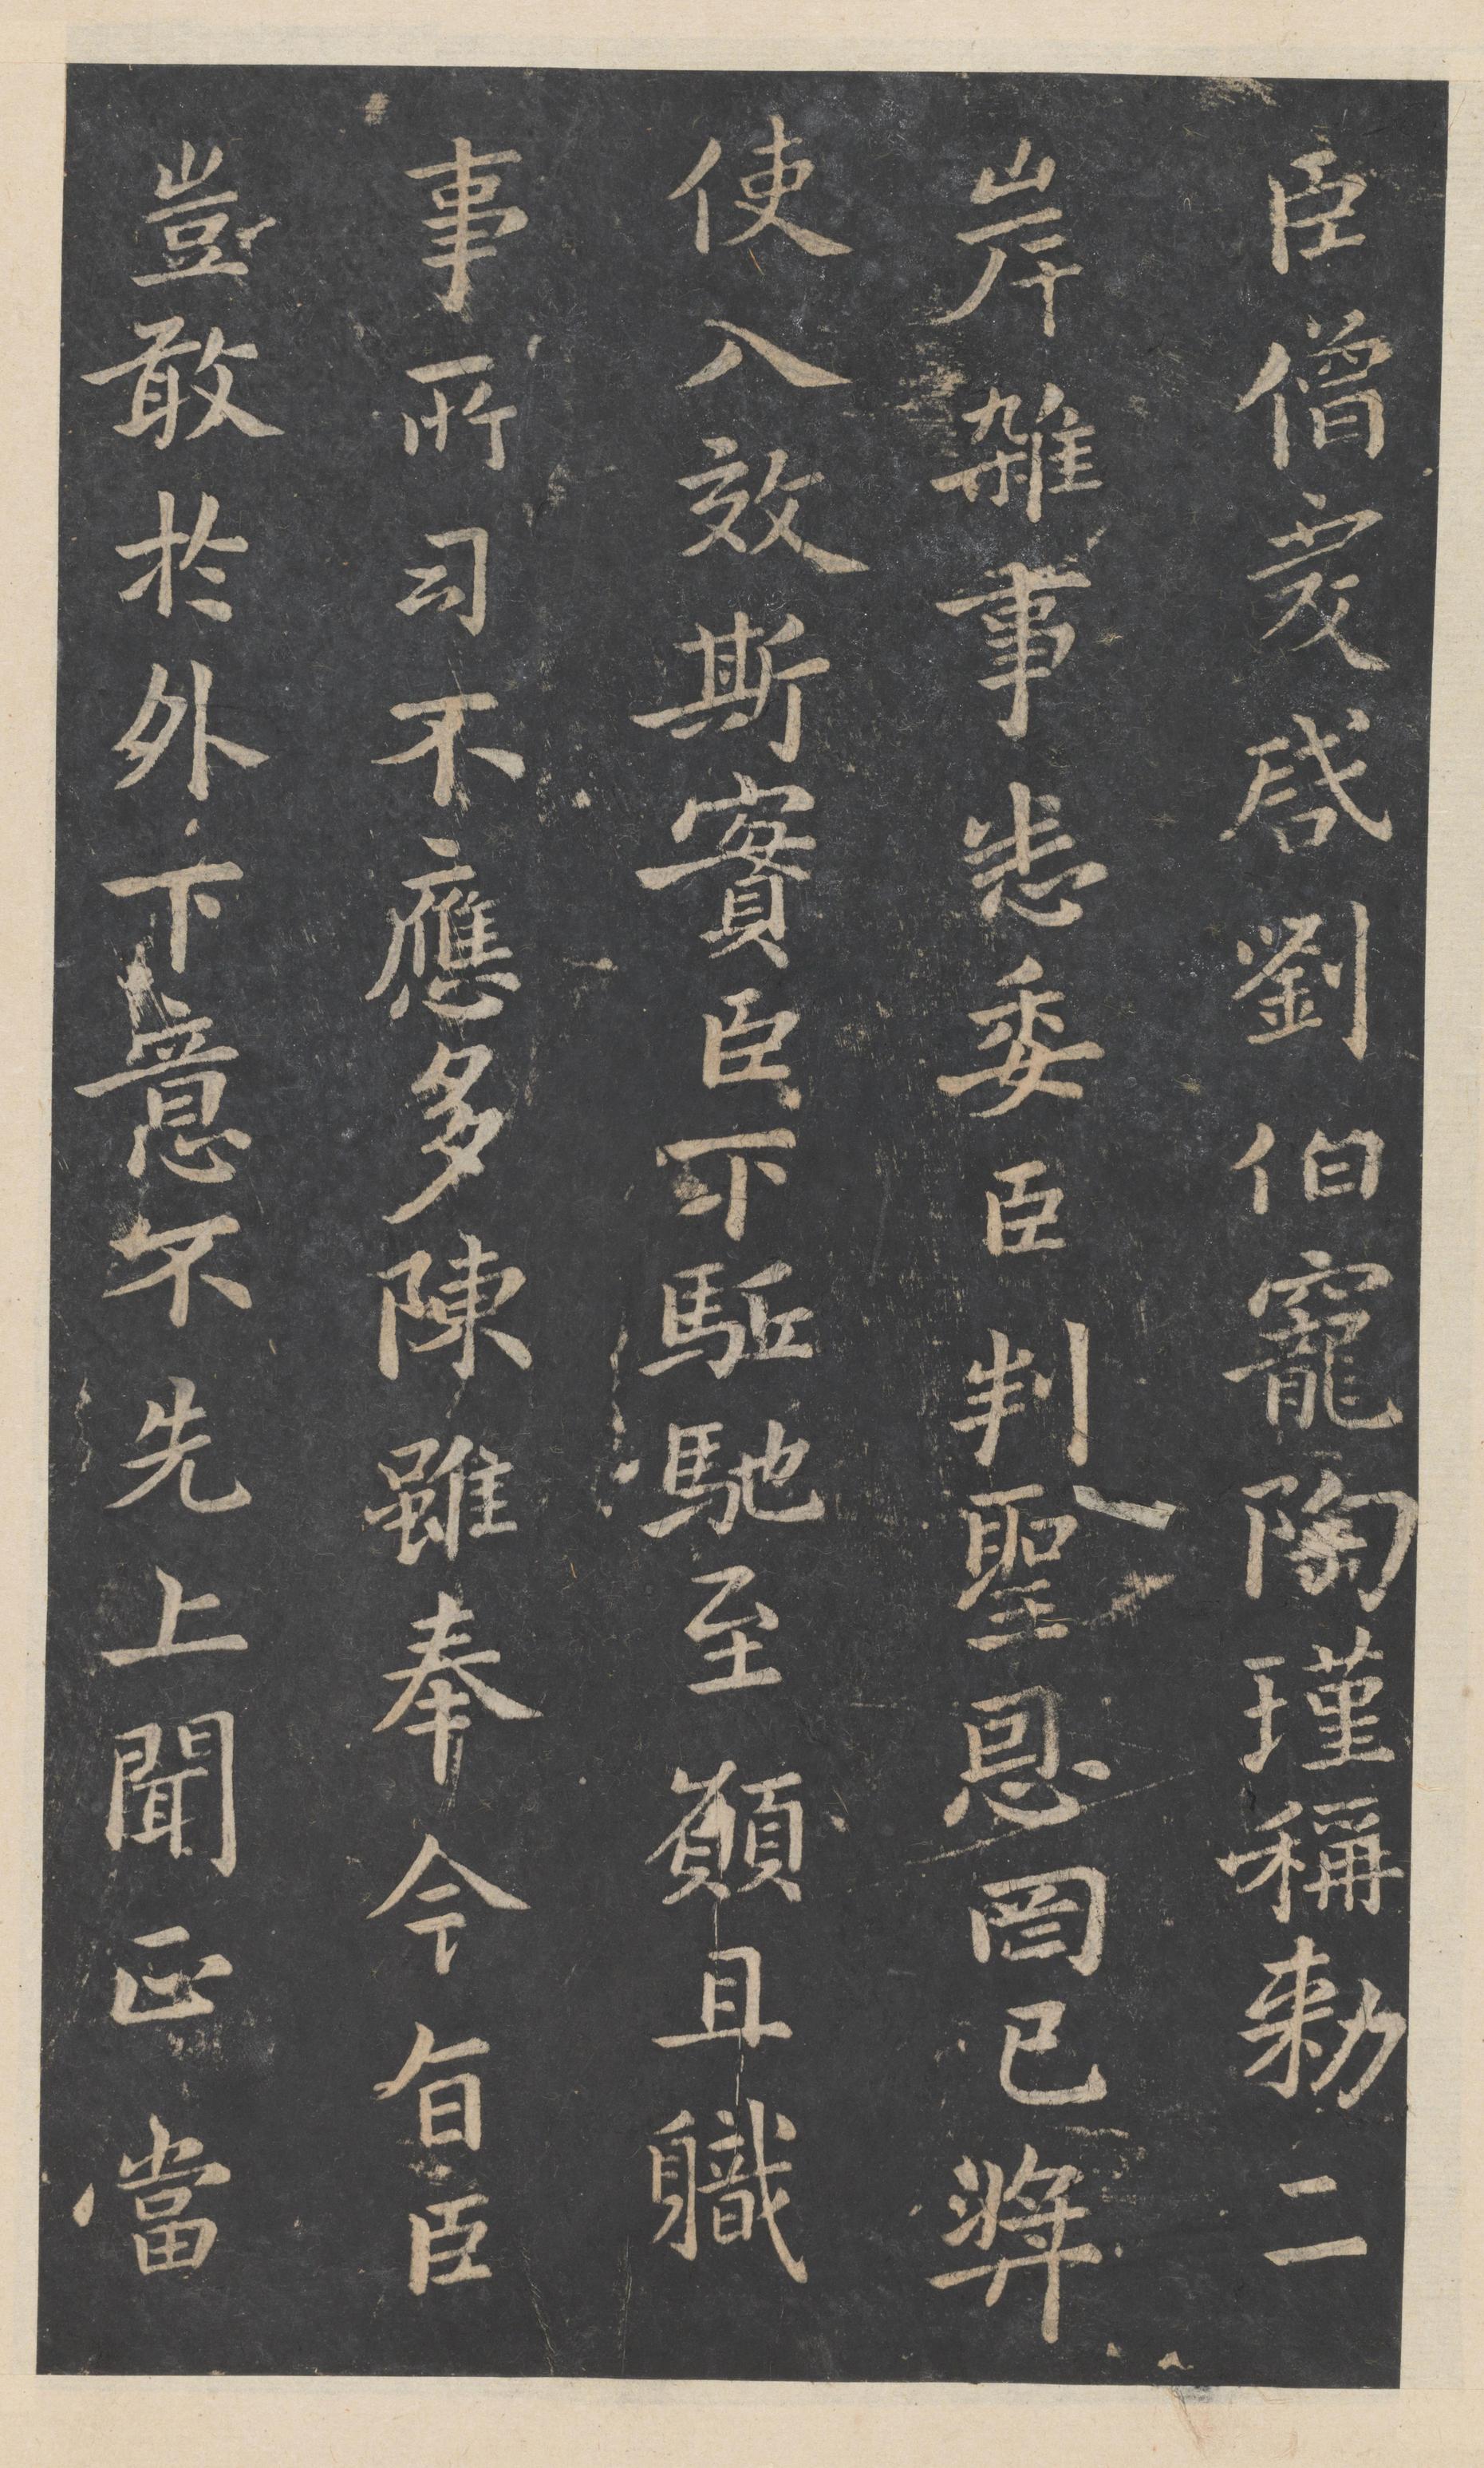 臣僧虔啓劉伯寵陶瑾稱勅二
岸雜事悉委臣判聖恩罔已奬
使入效斯實臣下駈馳至願且軄
事所司不應多陳雖奉令旨臣
豈敢於外下意不先上聞正當